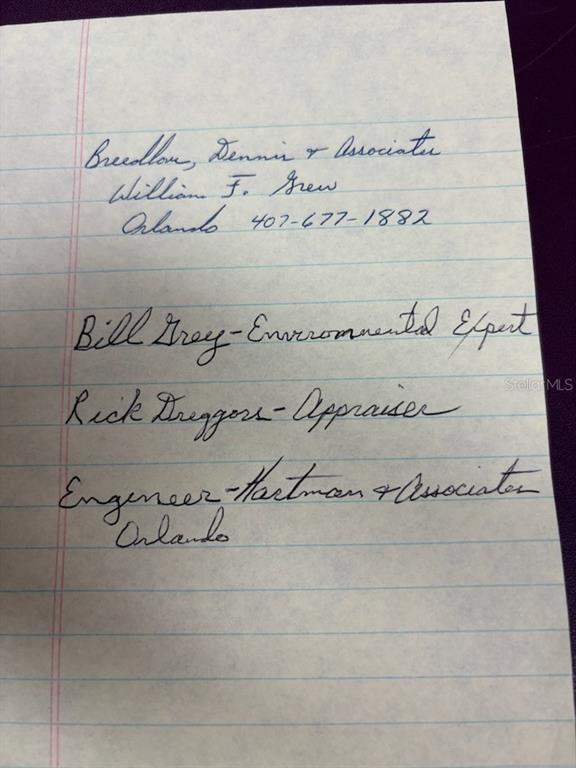 Breedlove, Dennis & Associates
William F. Grey
Orlando 407-677-1882
Bill Grey - Environmental Expert
Rick Dreggors - Appraiser
Engineer - Hartman & Associates
Orlando
StellarMLS